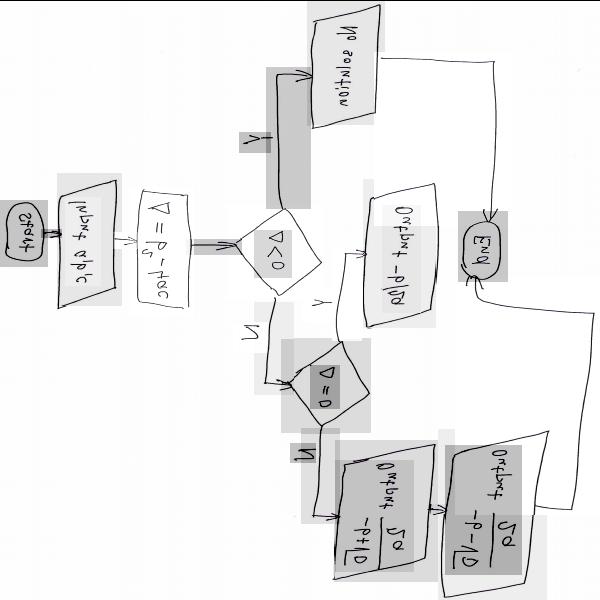 Start
Input a,b,c
Δ = b² - 4ac
Δ < 0
Y
No solution
N
Δ = 0
Y
Output -b/2a
N
Output
-b+√Δ
2a
Output
-b-√Δ
2a
End